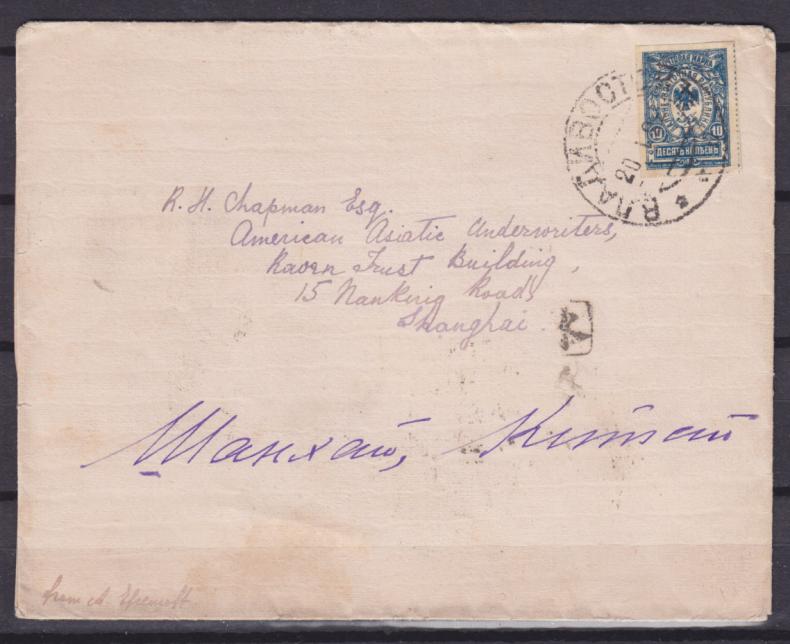 ПОЧТОВАЯ МАРКА
10 10
ДЕСЯТЬ КОПѢЕКЪ
ВЛАДИВОСТО
20
R. H. Chapman Esq.
American Asiatic Underwriters,
Raven Trust Building,
15 Nanking Road,
Shanghai.
Шанхай, Китай
from